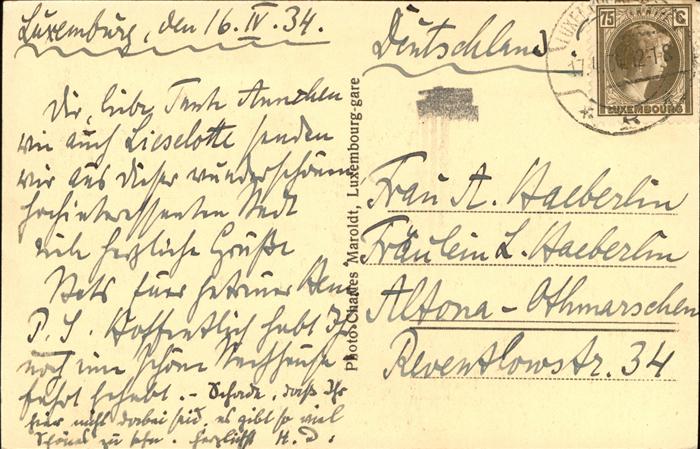 Luxemburg, den 16. IV. 34.
Dir, liebe Tante Annchen
wie auch Lieselotte senden
wir aus dieser wunderschönen
hochinteressanten Stadt
viele herzliche Grüße
Stets Euer getreuer
P.S. Hoffentlich habt Ihr
noch eine schöne Nachhause
fahrt gehabt. - Schade, daß Ihr
hier nicht dabei seid, es gibt so viel
Schönes zu sehn. herzlichst H. D.
Photo Charles Maroldt, Luxembourg-gare
Deutschland
75 C
LUXEMBOURG
Frau A. Haeberlin
Fräulein L. Haeberlin
Altona - Othmarschen
Reventlowstr. 34